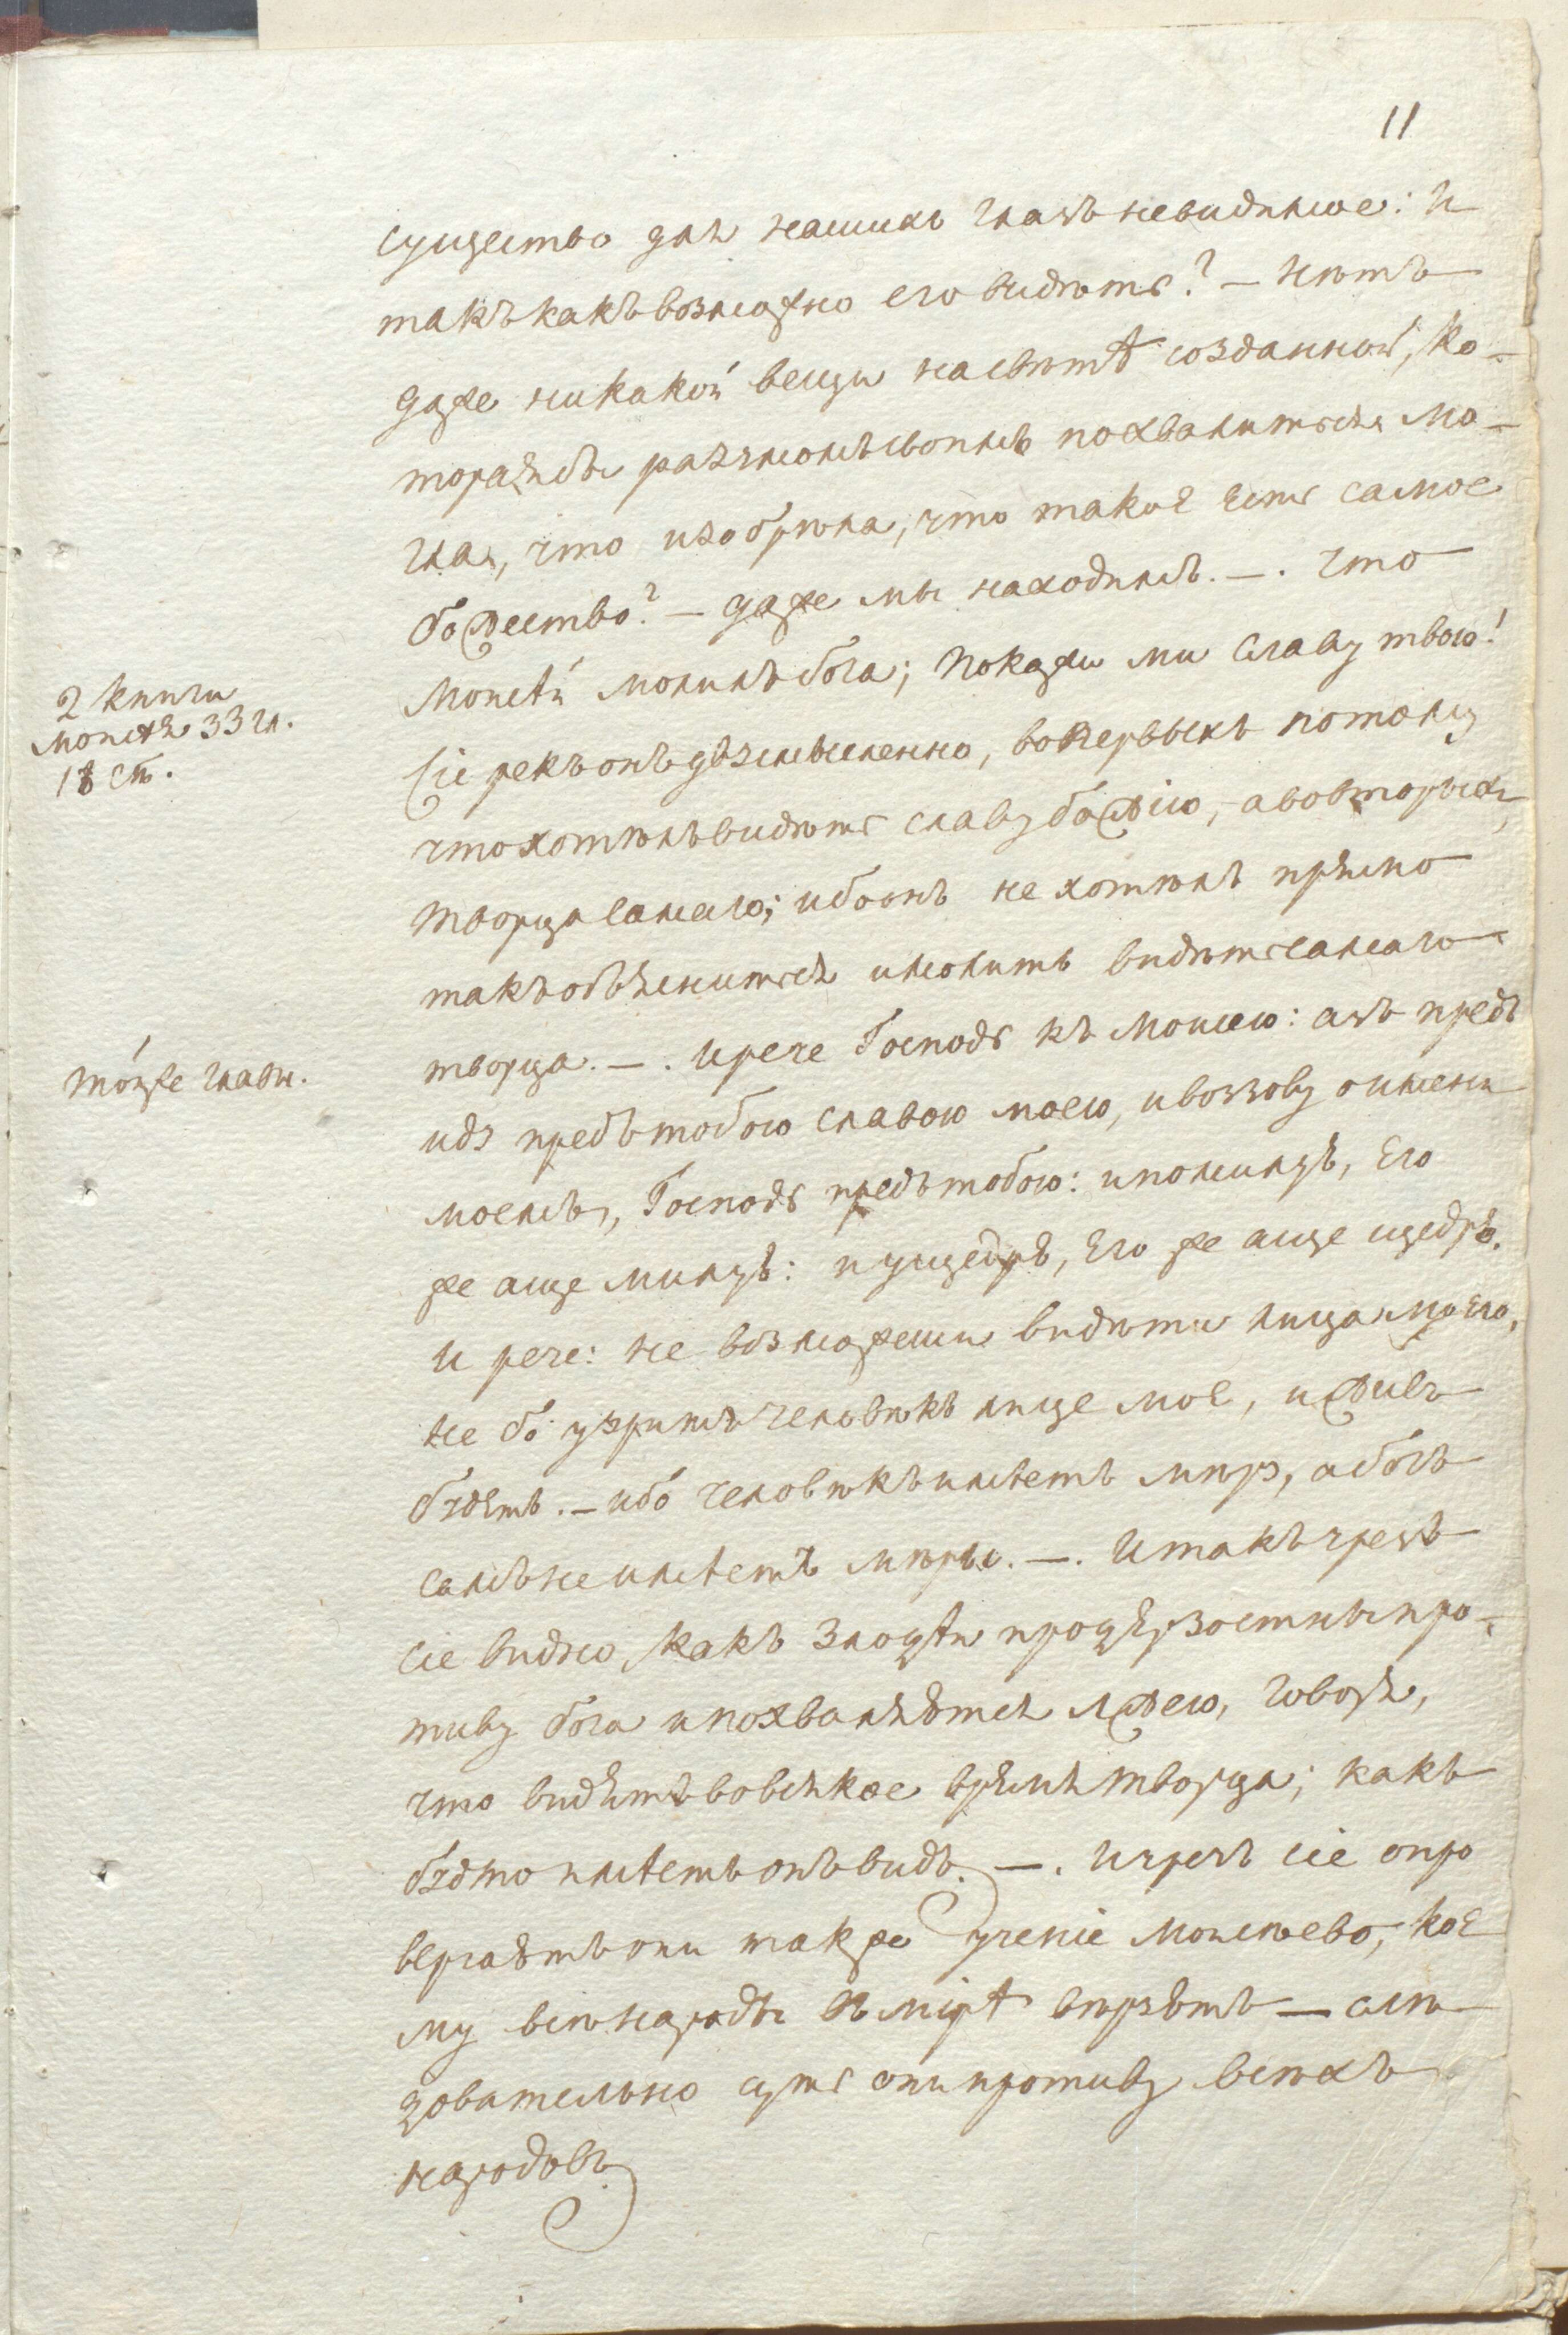 11
существо для нашихъ глазъ невидимое: И
такъ какъ возможно его видѣть? — нѣтъ
даже никакой вещи насвѣтѣ созданной, ко-
тораябы разумомъ своимъ похвалиться мо-
гла, что изобрѣла, что такое есть самое
божество? — даже мы находимъ. —. что
Моисей молилъ бога; покажи ми славу твою!
2 книги
Моисея 33 гл.
18 ст.
Сіе рекъ онъ двусмысленно, вопервыхъ потому
что хотѣлъ видѣть славу божію, а вовторыхъ,
творца самаго; ибо онъ не хотѣлъ прямо
такъ объяснится и молить видѣть самаго
творца. —. И рече Господь къ Моисею: азъ предъ
тойже главы.
иду предъ тобою славою моею, и воззову о имени
моемъ, Господь предъ тобою: и помилую, Его
же аще милую: и ущедрю, Его же аще щедрю.
И рече: не возможеши видѣти лица моего,
не бо узритъ человѣкъ лице мое, и живъ
будетъ. — ибо человѣкъ имѣетъ мѣру, а богъ
самъ не имѣетъ мѣры. —. И такъ чрезъ
сіе видно, какъ злодѣи продерзостны про-
тиву бога и похваляются лжею, говоря,
что видятъ во всякое время творца; какъ
будто имѣетъ онъ видъ. —. И чрезъ сіе опро
вергаютъ они также ученіе Моисеево, кое
му всѣ народы въ мірѣ вѣруютъ — слѣ
довательно суть они противу всѣхъ
народовъ.